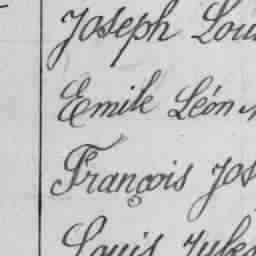 Joseph Lou
Emile Léon
François Jos
Louis Jules